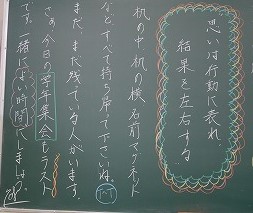 思いは行動に表れ
結果を左右する
机の中、机の横、名前マグネット
などすべて持ち帰って下さいね。
まだ、まだ残っている人がいます。
さぁ、今日の学年集会もラスト
です。一緒によい時間にしましょ。